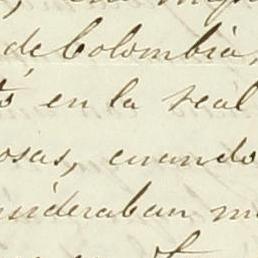 de Colombia,
en la real
osas, cuando
nsideraban m